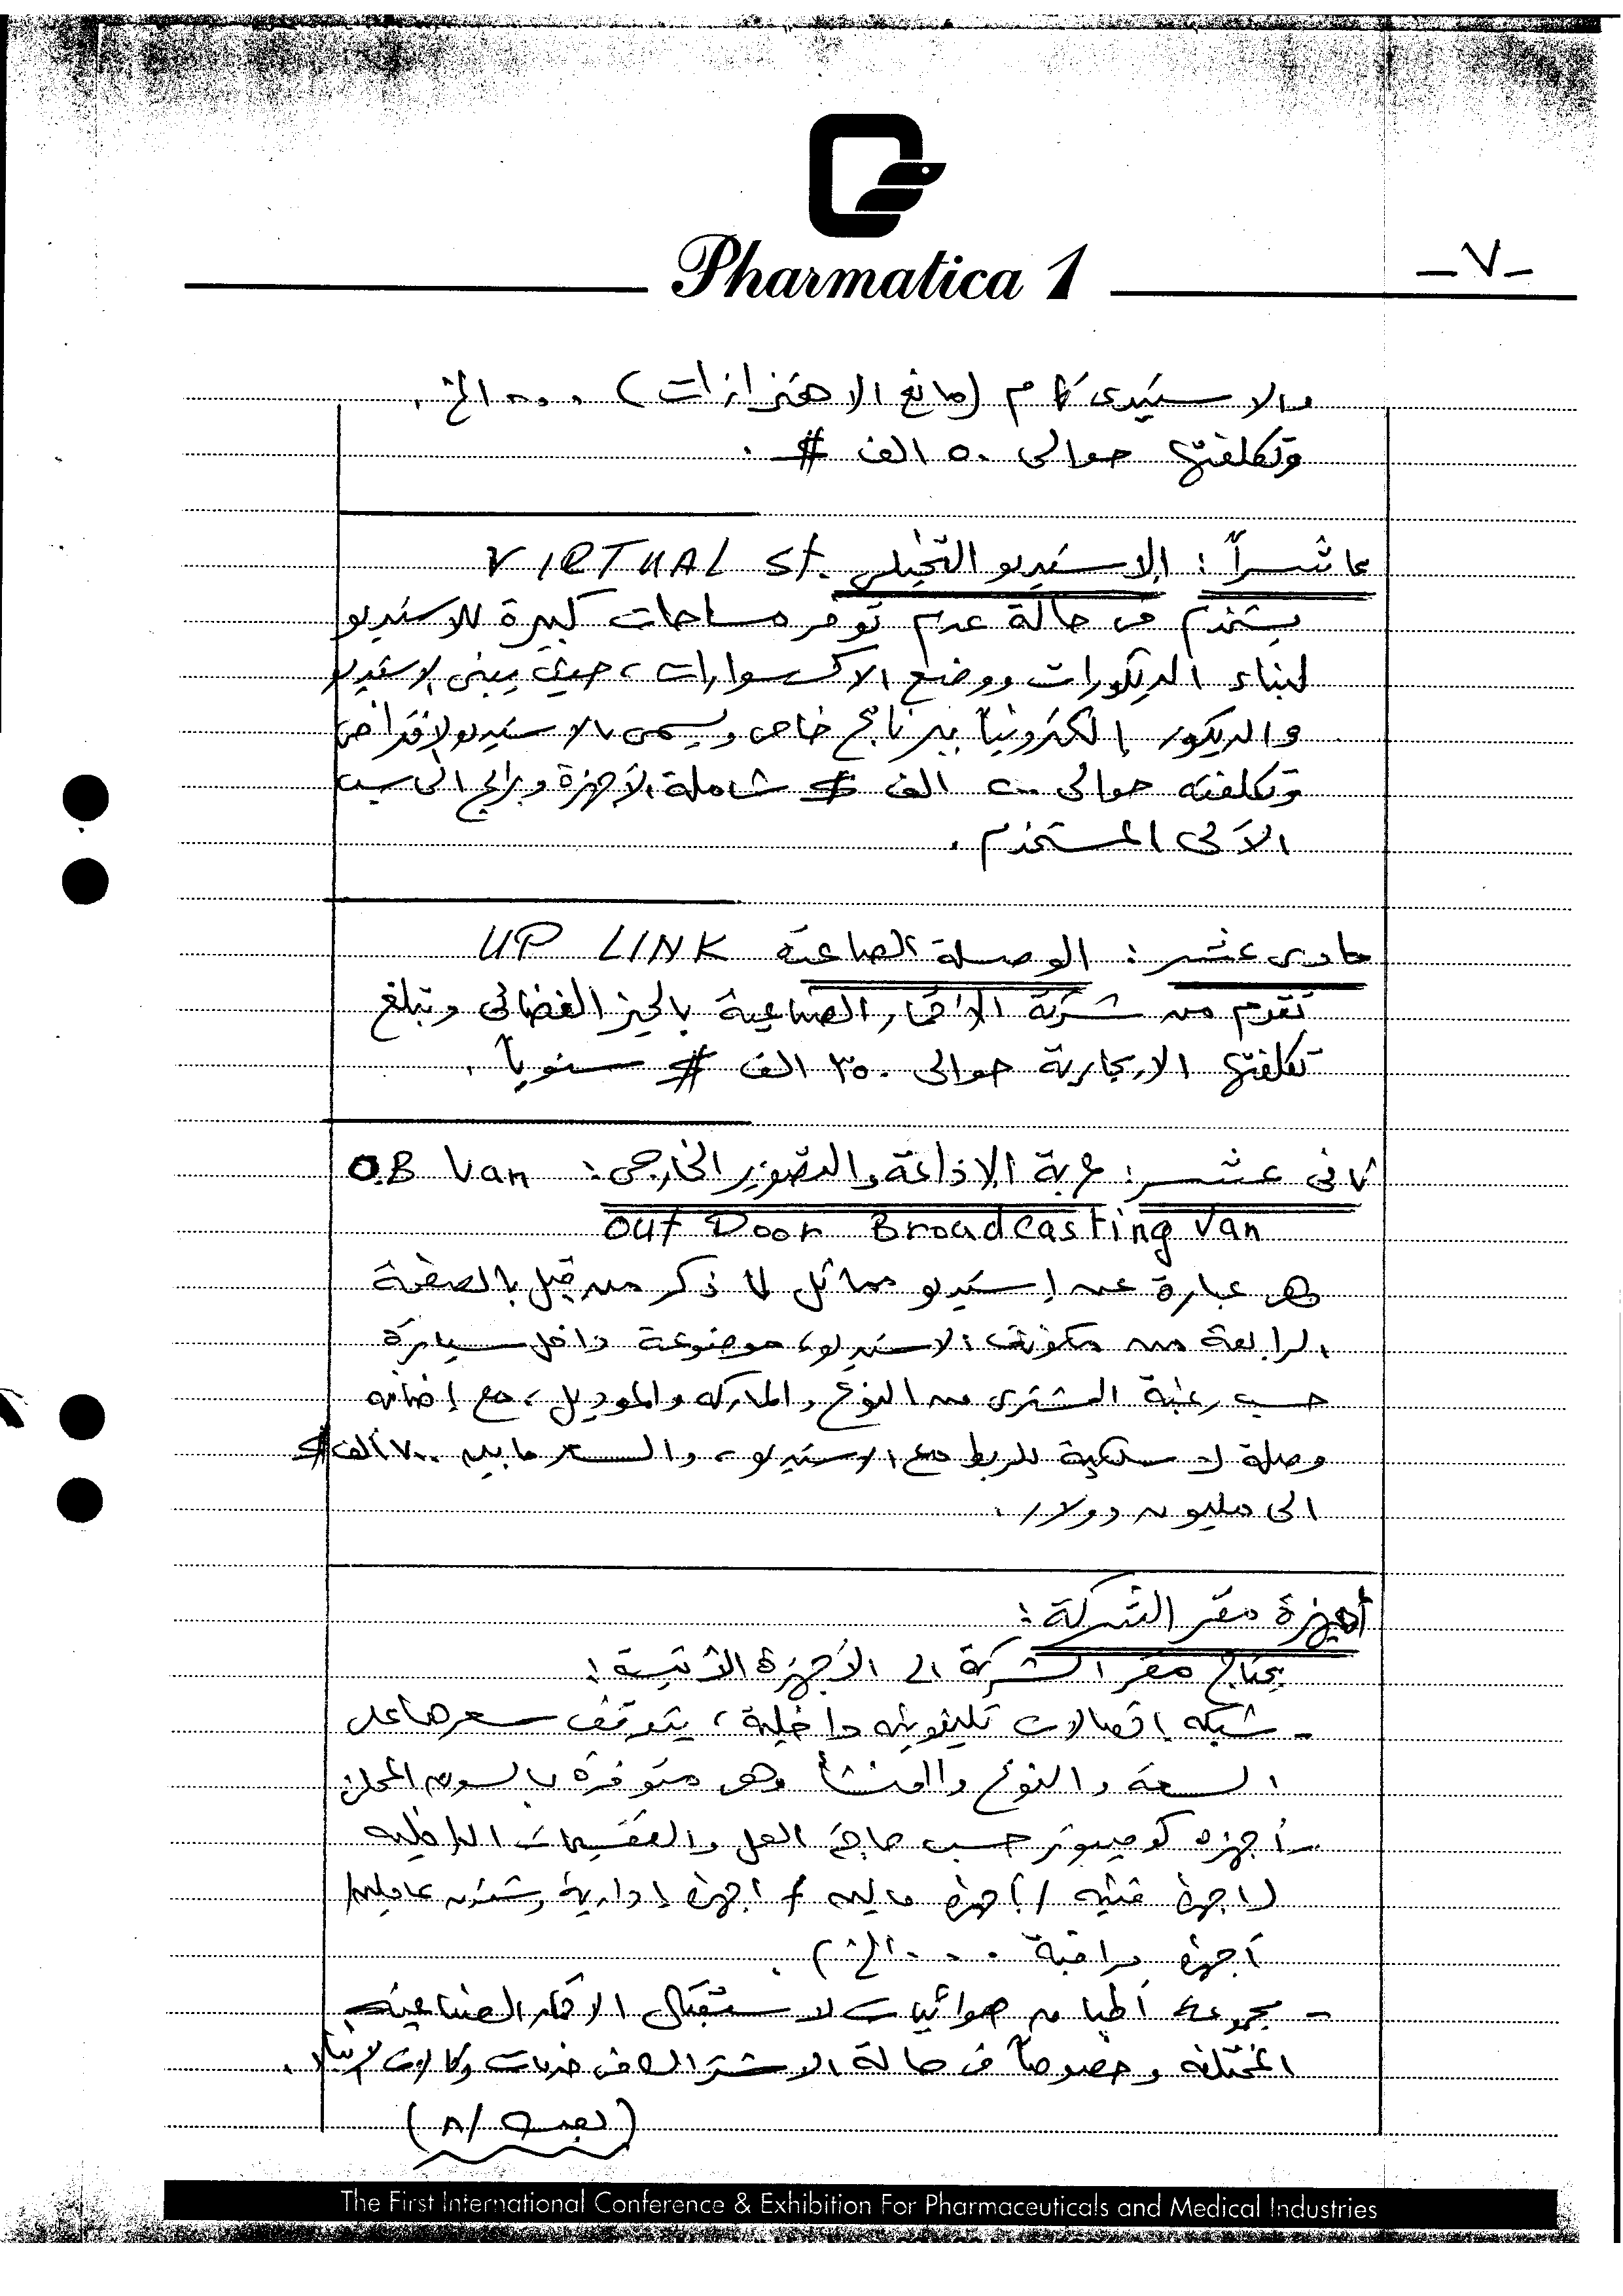 Pharmatica 1
-٧-
والاستيدى كام (مانع الاهتزازات) ٠٠٠ الخ.
وتكلفتها حوالى ٥٠ الف $ .
عاشراً : الاستيديو التخيلى VIRTUAL St.
يستخدم فى حالة عدم توفر مساحات كبيرة للاستيديو
لبناء الديكورات ووضع الاكسسوارات ، حيث يبنى الاستيديو
والديكور إلكترونياً ببرنامج خاص ويسمى بالاستيديو الافتراضى
وتكلفته حوالى ٢٠٠ الف $ شاملة الأجهزة وبرامج الحاسب
الآلى المستخدم .
حادى عشر : الوصلة الصاعدة UP LINK
تقدم من شركة الاقمار الصناعية بالحيز الفضائى وتبلغ
تكلفتها الايجارية حوالى ٣٥٠ الف $ سنوياً .
ثانى عشر : عربة الإذاعة والتصوير الخارجى : O.B Van
Out Door Broadcasting Van
هى عبارة عن إستيديو مماثل لما ذكر من قبل بالصفحة
الرابعة من مكونات الاستيديو، موضوعة داخل سيارة
حسب رغبة المشترى من النوع والماركه والموديل ، مع إضافه
وصلة لاسلكية للربط مع الاستيديو ، والسعر ما بين ٧٠٠ ألف $
الى مليون دولار .
أجهزة مقر الشركة :
يحتاج مقر الشركة الى الأجهزة الآتية :
- شبكه إتصالات تليفونيه داخلية ، يتوقف سعرها على
السعة والنوع والمنشأ وهى متوفرة بالسوق المحلى
- أجهزه كومبيوتر حسب حاجة العمل والتقسيمات الداخليه
(اجهزة فنيه / أجهزة ماليه / أجهزة إدارية وشئون عاملين /
أجهزة مراقبة ٠٠٠ الخ) .
- مجموعة أطباق هوائيات لاستقبال الاقمار الصناعيه
المختلفه وخصوصاً فى حالة الاشتراك فى خدمات وكالات الانباء .
(يتبع / ٨)
The First International Conference & Exhibition For Pharmaceuticals and Medical Industries